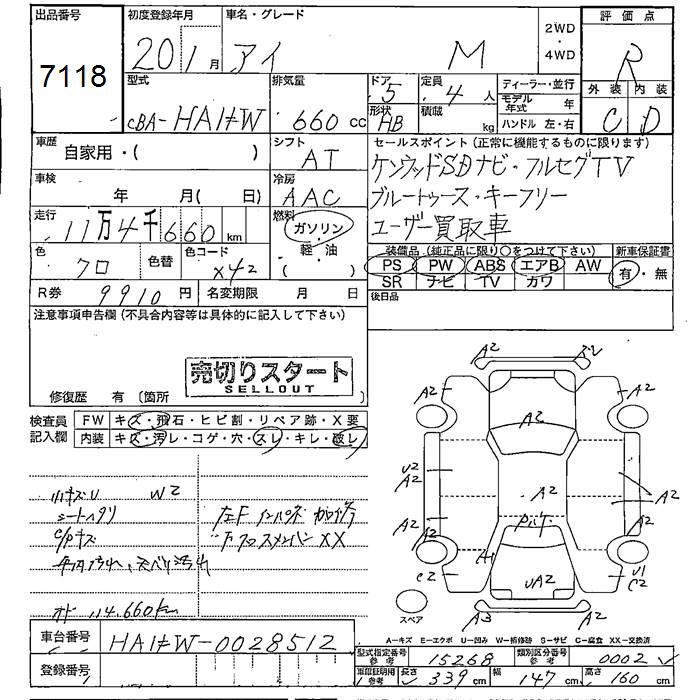 出品番号 初度登録年月 車名・グレード 2WD 評価点
7118 20 1月 アイ M 4WD R
型式 排気量 ドア 定員 ディーラー・並行 外装 内装
CBA-HA1W 660 cc 5 4 人 モデル年式 年 C D
形状 積載
HB kg ハンドル 左・右
車歴 シフト セールスポイント (正常に機能するものに限ります)
自家用・( ) AT ケンウッドSDナビ・フルセグTV
車検 冷房 ブルートゥース・キーフリー
年 月( 日) AAC ユーザー買取車
走行 燃料
11万4千660km ガソリン・
軽・油
( )
色 色替 色コード 装備品 (純正品に限り○をつけて下さい) 新車保証書
クロ X42 PS PW ABS エアB AW 有・無
SR ナビ TV カワ
R券 9910円 名変期限 月 日 後日品
注意事項申告欄 (不具合内容等は具体的に記入して下さい)
売切りスタート
SELLOUT
修復歴 有 〔箇所 〕
検査員 FW キズ・飛石・ヒビ割・リペア跡・X要
記入欄 内装 キズ・汚レ・コゲ・穴・スレ・キレ・破レ
小キズU W2
シートヘタリ 左F インパネ
C/Pキズ
オド 114.660km
A2
A2 A2
A2
U2
A2 A2 A2
A2 A2
C2 UA2 U1
C2
A3 A2
スペア
A-キズ E-エクボ U-凹み W-補修跡 S-サビ C-腐食 XX-交換済
車台番号 HA1W-0028512
型式指定番号 参考 15268 類別区分番号 参考 0002
登録番号
車庫証明用 参考 長さ 339 cm 幅 147 cm 高さ 160 cm